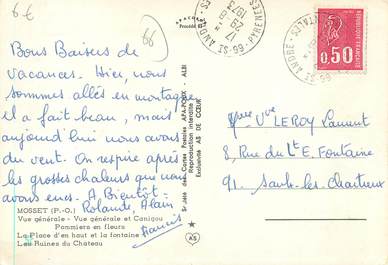 66
66
Bons Baisers de
vacances. Hier, nous
sommes allés en montagne
il a fait beau, mais
aujourd'hui nous avons
du vent. On respire après
les grosses chaleurs que nous
avons eues. A Bientôt.
Rolande, Alain
Francis
MOSSET (P.-O.)
Vue générale - Vue générale et Canigou
Pommiers en fleurs
La Place d'en haut et la fontaine
Les Ruines du Château
APACOLOR
Sté des Cartes Postales APA-POUX - ALBI
Reproduction interdite
Exclusivité AS DE CŒUR
AS
66-ST ANDRE-PYRENEES
17
1973
0,50
FRANÇAISE
Vve LEROY Laurent
8, Rue du Lt E. Fontaine
91. Saulx-les-Chartreux